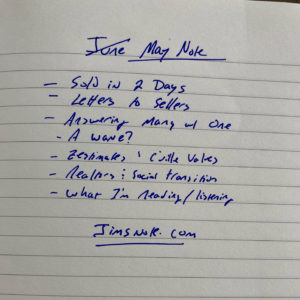 June May Note
- Sold in 2 Days
- Letters to Sellers
- Answering Many w/ One
- A wave?
- Zestimates & C'ville Values
- Realtors & Social transition
- what I'm Reading/listening
JimsNote.com